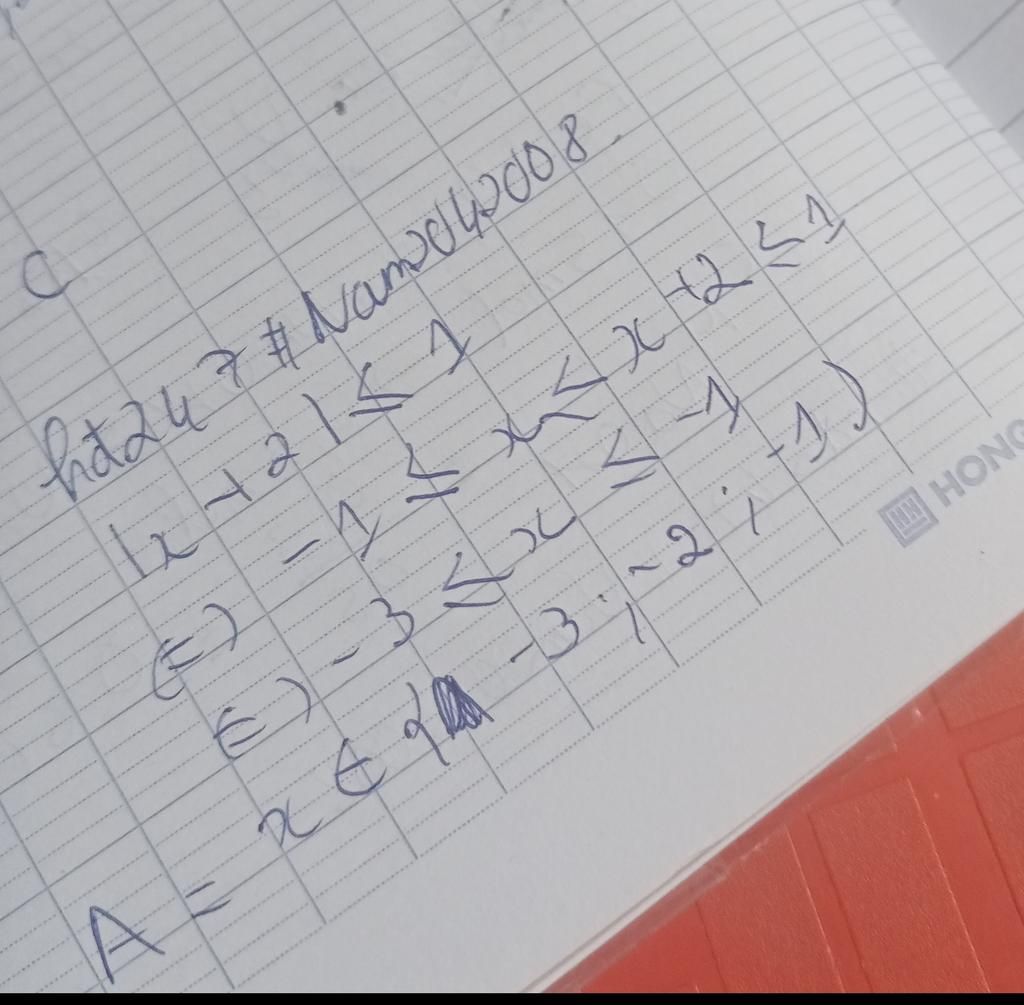 C
hd247#Nam2042008.
|x+2|≤1
(=) -1≤x≤x+2≤1
(=) -3≤x≤-1
x∈{-3;-2;-1)
A=
HONG